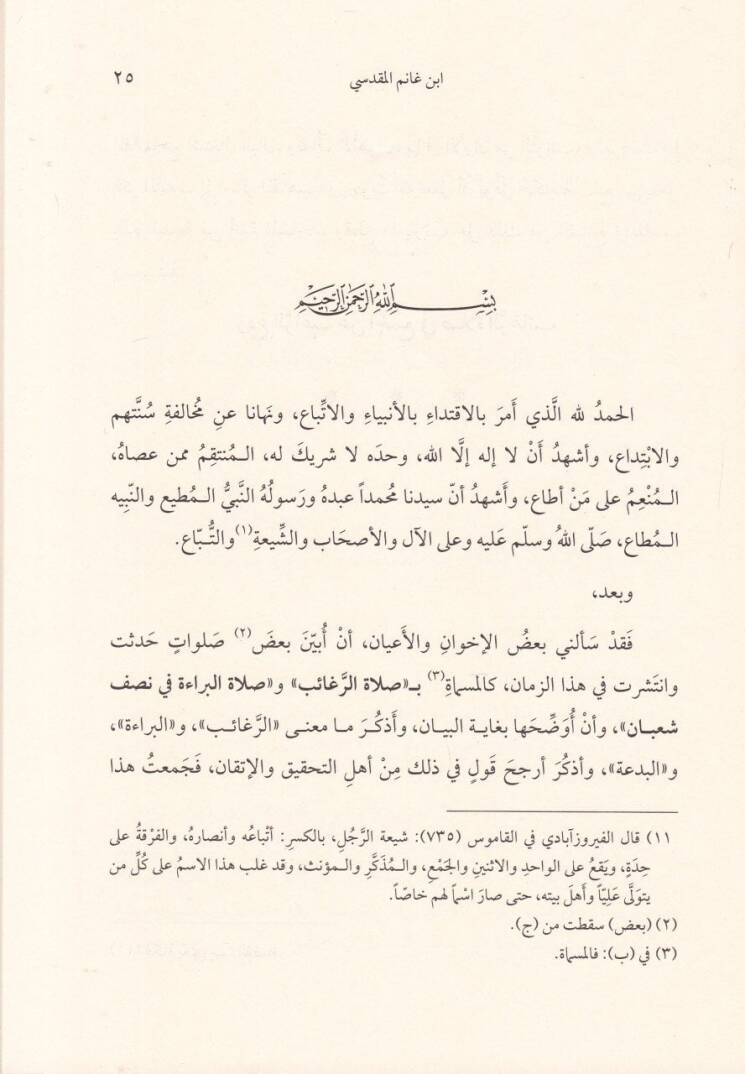 ابن غانم المقدسي ٢٥
بِسْمِ اللهِ الرَّحْمَنِ الرَّحِيمِ
الحمدُ لله الَّذي أَمرَ بالاقتداءِ بالأنبياءِ والاتِّباع، ونَهانا عنِ مُخالفةِ سُنَّتهم
والابْتِداع، وأشهدُ أَنْ لا إله إلَّا الله، وحدَه لا شريكَ له، الـمُنتقِمُ ممن عصاهُ،
الـمُنْعِمُ على مَنْ أطاع، وأَشهدُ أنّ سيدنا محمداً عبدهُ ورَسولُهُ النَّبيُّ الـمُطيع والنّبِيه
الـمُطاع، صَلّى اللهُ وسلّم عَليه وعلى الآل والأصحَاب والشِّيعةِ(١) والتُّـبّاع.
وبعد،
فَقدْ سَألني بعضُ الإخوانِ والأَعيان، أنْ أُبيّنَ بعضَ(٢) صَلواتٍ حَدثت
وانتَشرت في هذا الزمان، كالمسماةِ(٣) بـ«صلاة الرَّغائب» و«صلاة البراءة في نصف
شعبـان»، وأنْ أُوَضِّحَها بغايـة البيـان، وأَذكُـرَ مـا معنـى «الرَّغائب»، و«البراءة»،
و«البدعة»، وأذكُرَ أرجحَ قَولٍ في ذلك مِنْ أهلِ التحقيق والإتقان، فَجَمعتُ هذا
١١) قال الفيروزآبادي في القاموس (٧٣٥): شيعة الرَّجُلِ، بالكسرِ: أتْباعُه وأنصارهُ، والفرْقةُ على
حِدَةٍ، ويَقعُ على الواحدِ والاثنينِ والجَمْعِ، والـمُذَكَّرِ والـمؤنث، وقد غلب هذا الاسمُ على كُلِّ من
يتولَّى عَلِيّاً وأهلَ بيته، حتى صارَ اسْماً لهم خاصّاً.
(٢) (بعض) سقطت من (ج).
(٣) في (ب): فالمسماة.